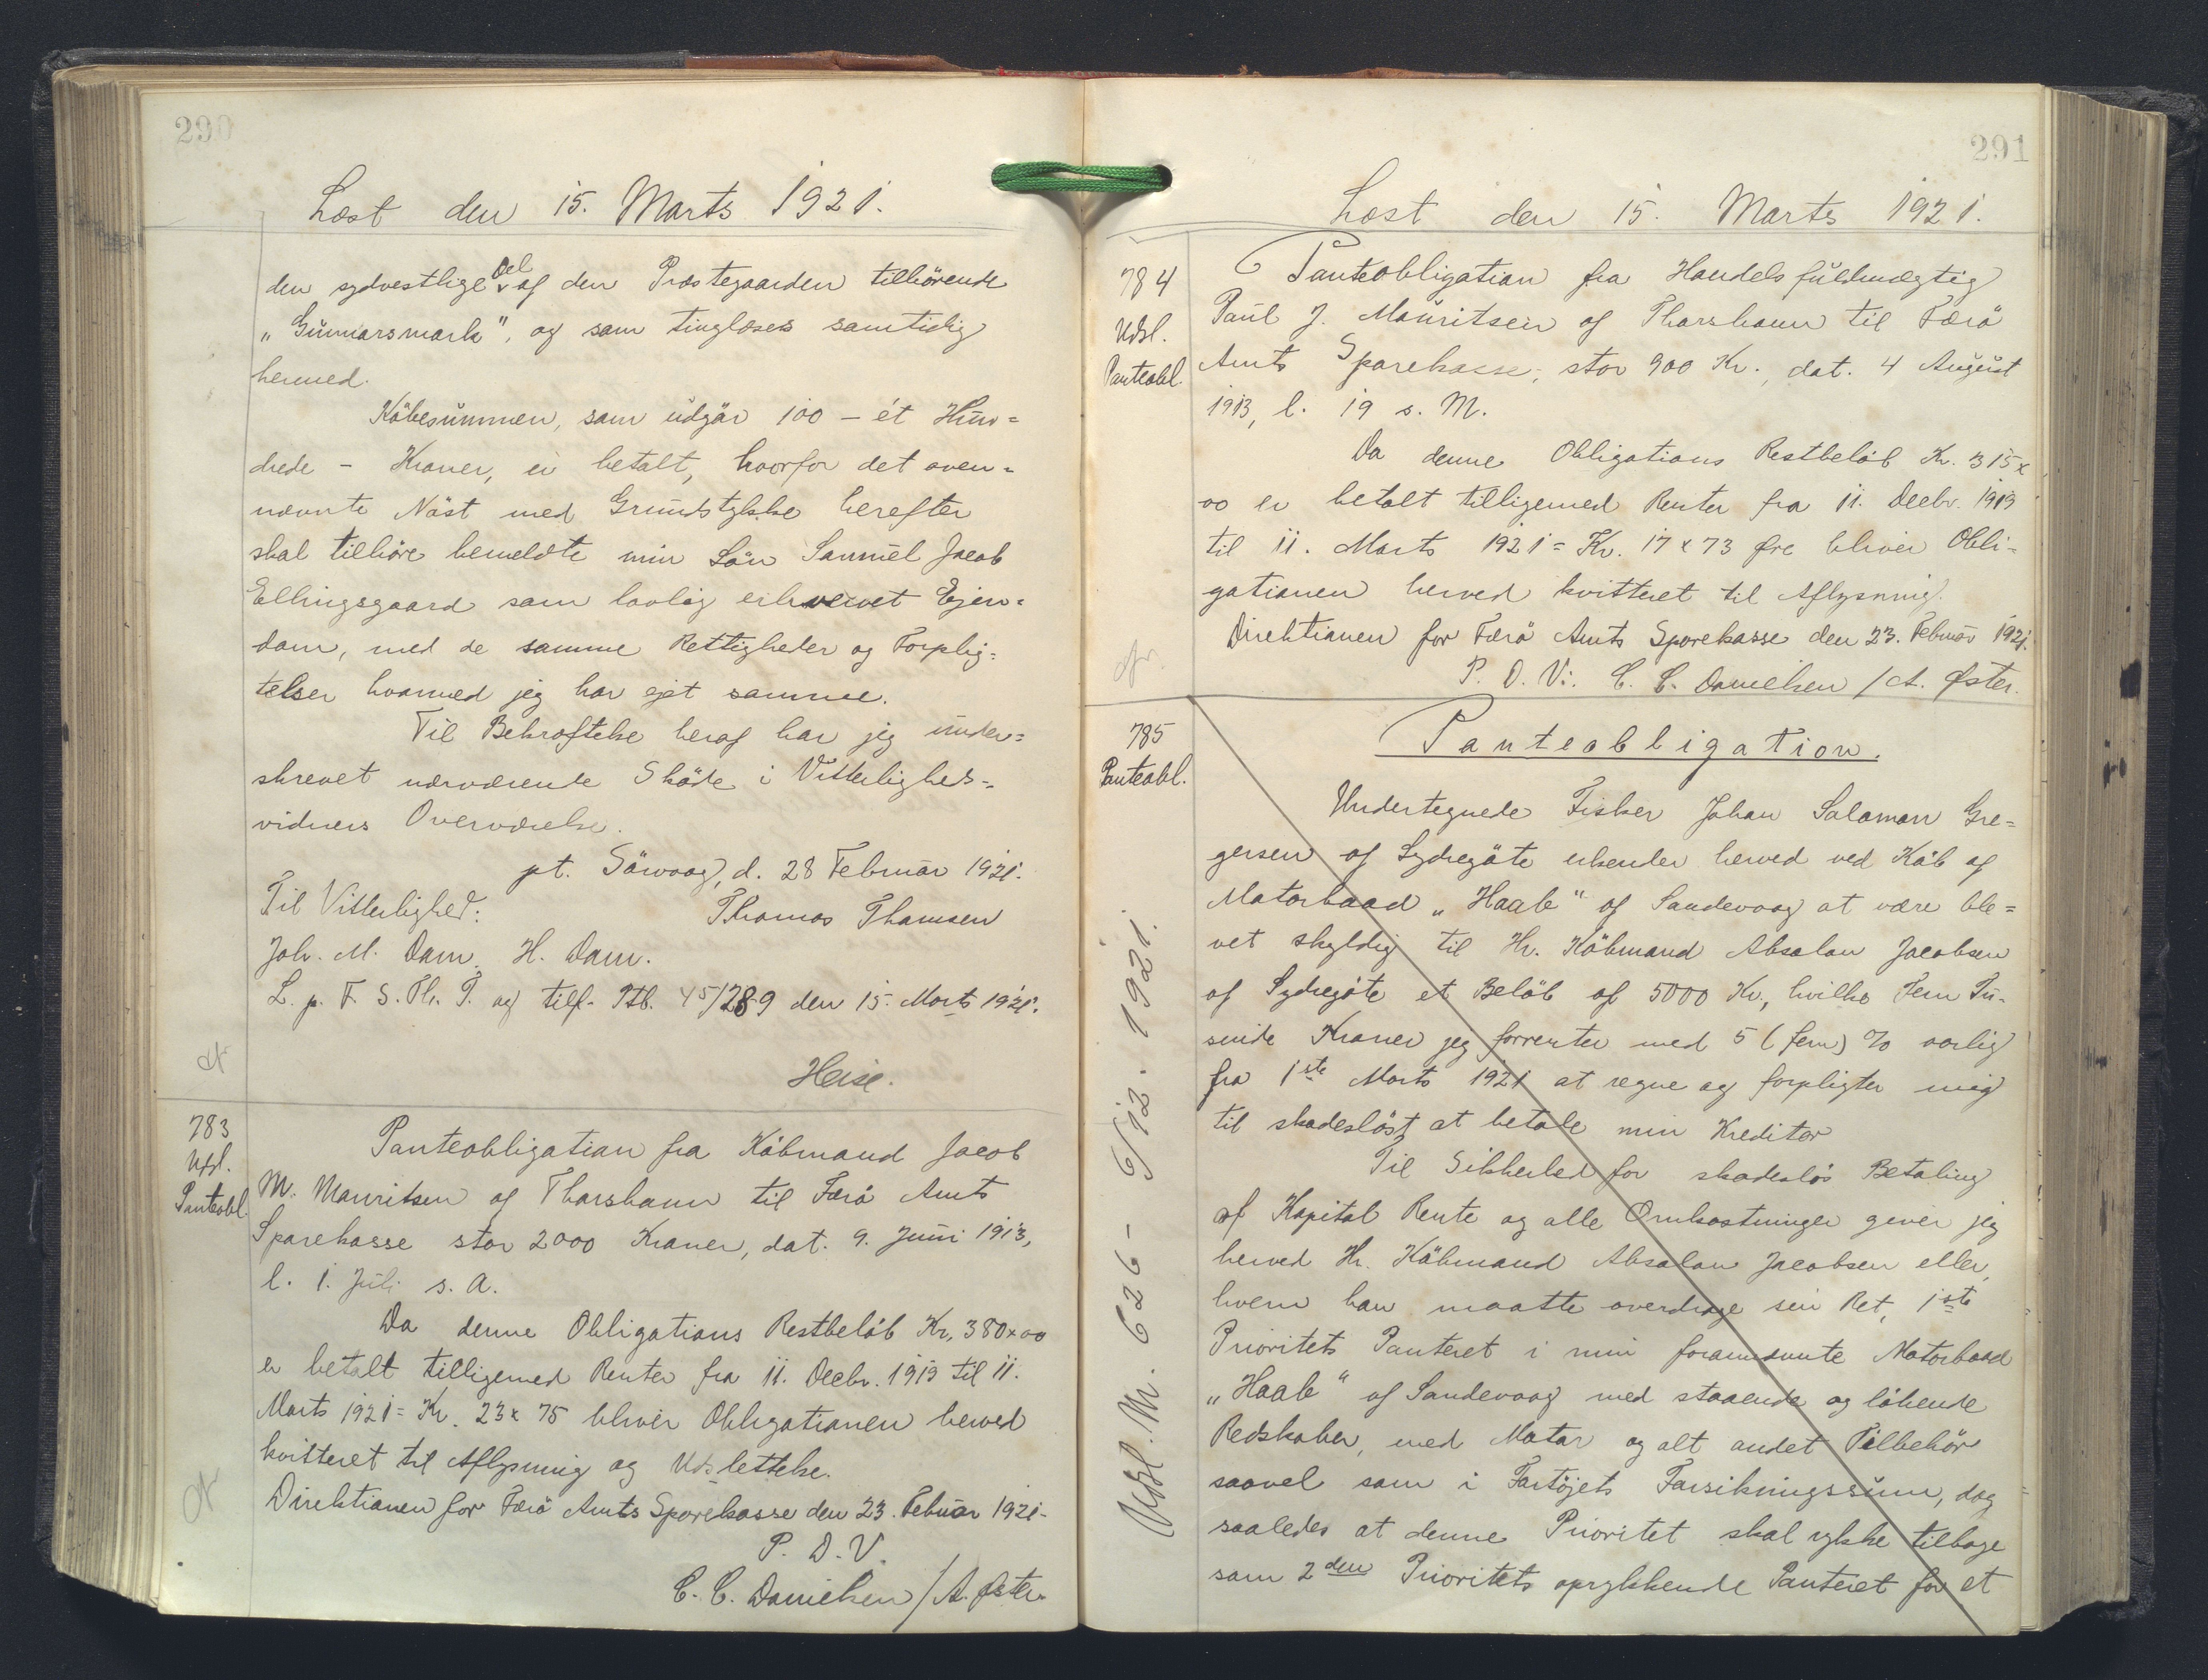 290
Læst den 15. Marts 1921.
den sydvestlige Del af den Præstegaarden tilhörende
„Gunnarsmark", og som tinglæses samtidig
hermed.
Köbesummen, som udgör 100 – ét Hun=
drede – Kroner, er betalt, hvorfor det oven=
nævnte Nöst med Grundstykke herefter
skal tilhöre bemeldte min Sön Samuel Jacob
Ellingsgaard som lovlig erhvervet Ejen=
dom, med de samme Rettigheder og Forplig=
telser hvormed jeg har ejet samme.
Til Bekræftelse heraf har jeg under=
skrevet nærværende Sköde i Vitterligheds=
vidners Overværelse.
pt. Sörvaag, d. 28 Februar 1921.
Til Vitterlighed: Thomas Thomsen
Joh. M. Dam. H. Dam.
L. p. F. S. Th. T. og tilf. Ptb. 45/289 den 15. Marts 1921.
Heise.
783
Udsl.
Panteobl.
Panteobligation fra Köbmand Jacob
M. Mauritsen af Thorshavn til Færö Amts
Sparekasse stor 2000 Kroner, dat. 9. Juni 1913,
l. 1. Juli s. A.
Da denne Obligations Restbelöb Kr. 380×00
er betalt tilligemed Renter fra 11. Decbr. 1919 til 11.
Marts 1921 = Kr. 23 × 75 bliver Obligationen herved
kvitteret til Aflysning og Udslettelse.
Direktionen for Færö Amts Sparekasse den 23. Februar 1921.
P. D. V.
C. C. Danielsen / A. Øster.
291
Læst den 15. Marts 1921.
784
Udsl.
Panteobl.
Panteobligation fra Handelsfuldmægtig
Paul J. Mauritsen af Thorshavn til Færö
Amts Sparekasse, stor 900 Kr., dat. 4 August
1913, l. 19 s. M.
Da denne Obligations Restbelöb Kr. 315×
00 er betalt tilligemed Renter fra 11. Decbr. 1919
til 11. Marts 1921 = Kr. 17 × 73 Øre bliver Obli=
gationen herved kvitteret til Aflysning.
Direktionen for Færö Amts Sparekasse den 23. Februar 1921.
P. D. V:. C. C. Danielsen / A. Øster.
785
Panteobl.
Panteobligation.
Undertegnede Fisker Johan Salomon Gre=
gersen af Sydregöte erkender herved ved Köb af
Motorbaad „Haab" af Sandevaag at være ble=
vet skyldig til Hr. Köbmand Absalon Jacobsen
af Sydregöte et Belöb af 5000 Kr., hvilke Fem Tu=
sinde Kroner jeg forrenter med 5 (fem) % aarlig
fra 1ste Marts 1921 at regne og forpligter mig
til skadeslöst at betale min Kreditor
Til Sikkerhed for skadeslös Betaling
af Kapital Rente og alle Omkostninger giver jeg
herved Hr. Köbmand Absalon Jacobsen eller
hvem han maatte overdrage sin Ret, 1ste
Prioritets Panteret i min forannævnte Motorbaad
„Haab" af Sandevaag med staaende og löbende
Redskaber, med Motor og alt andet Tilbehör
saavel som i Fartöjets Forsikringssum, dog
saaledes at denne Prioritet skal rykke tilbage
som 2den Prioritets oprykkende Panteret for et
Udsl. M. 626 – 6/12. 1921.